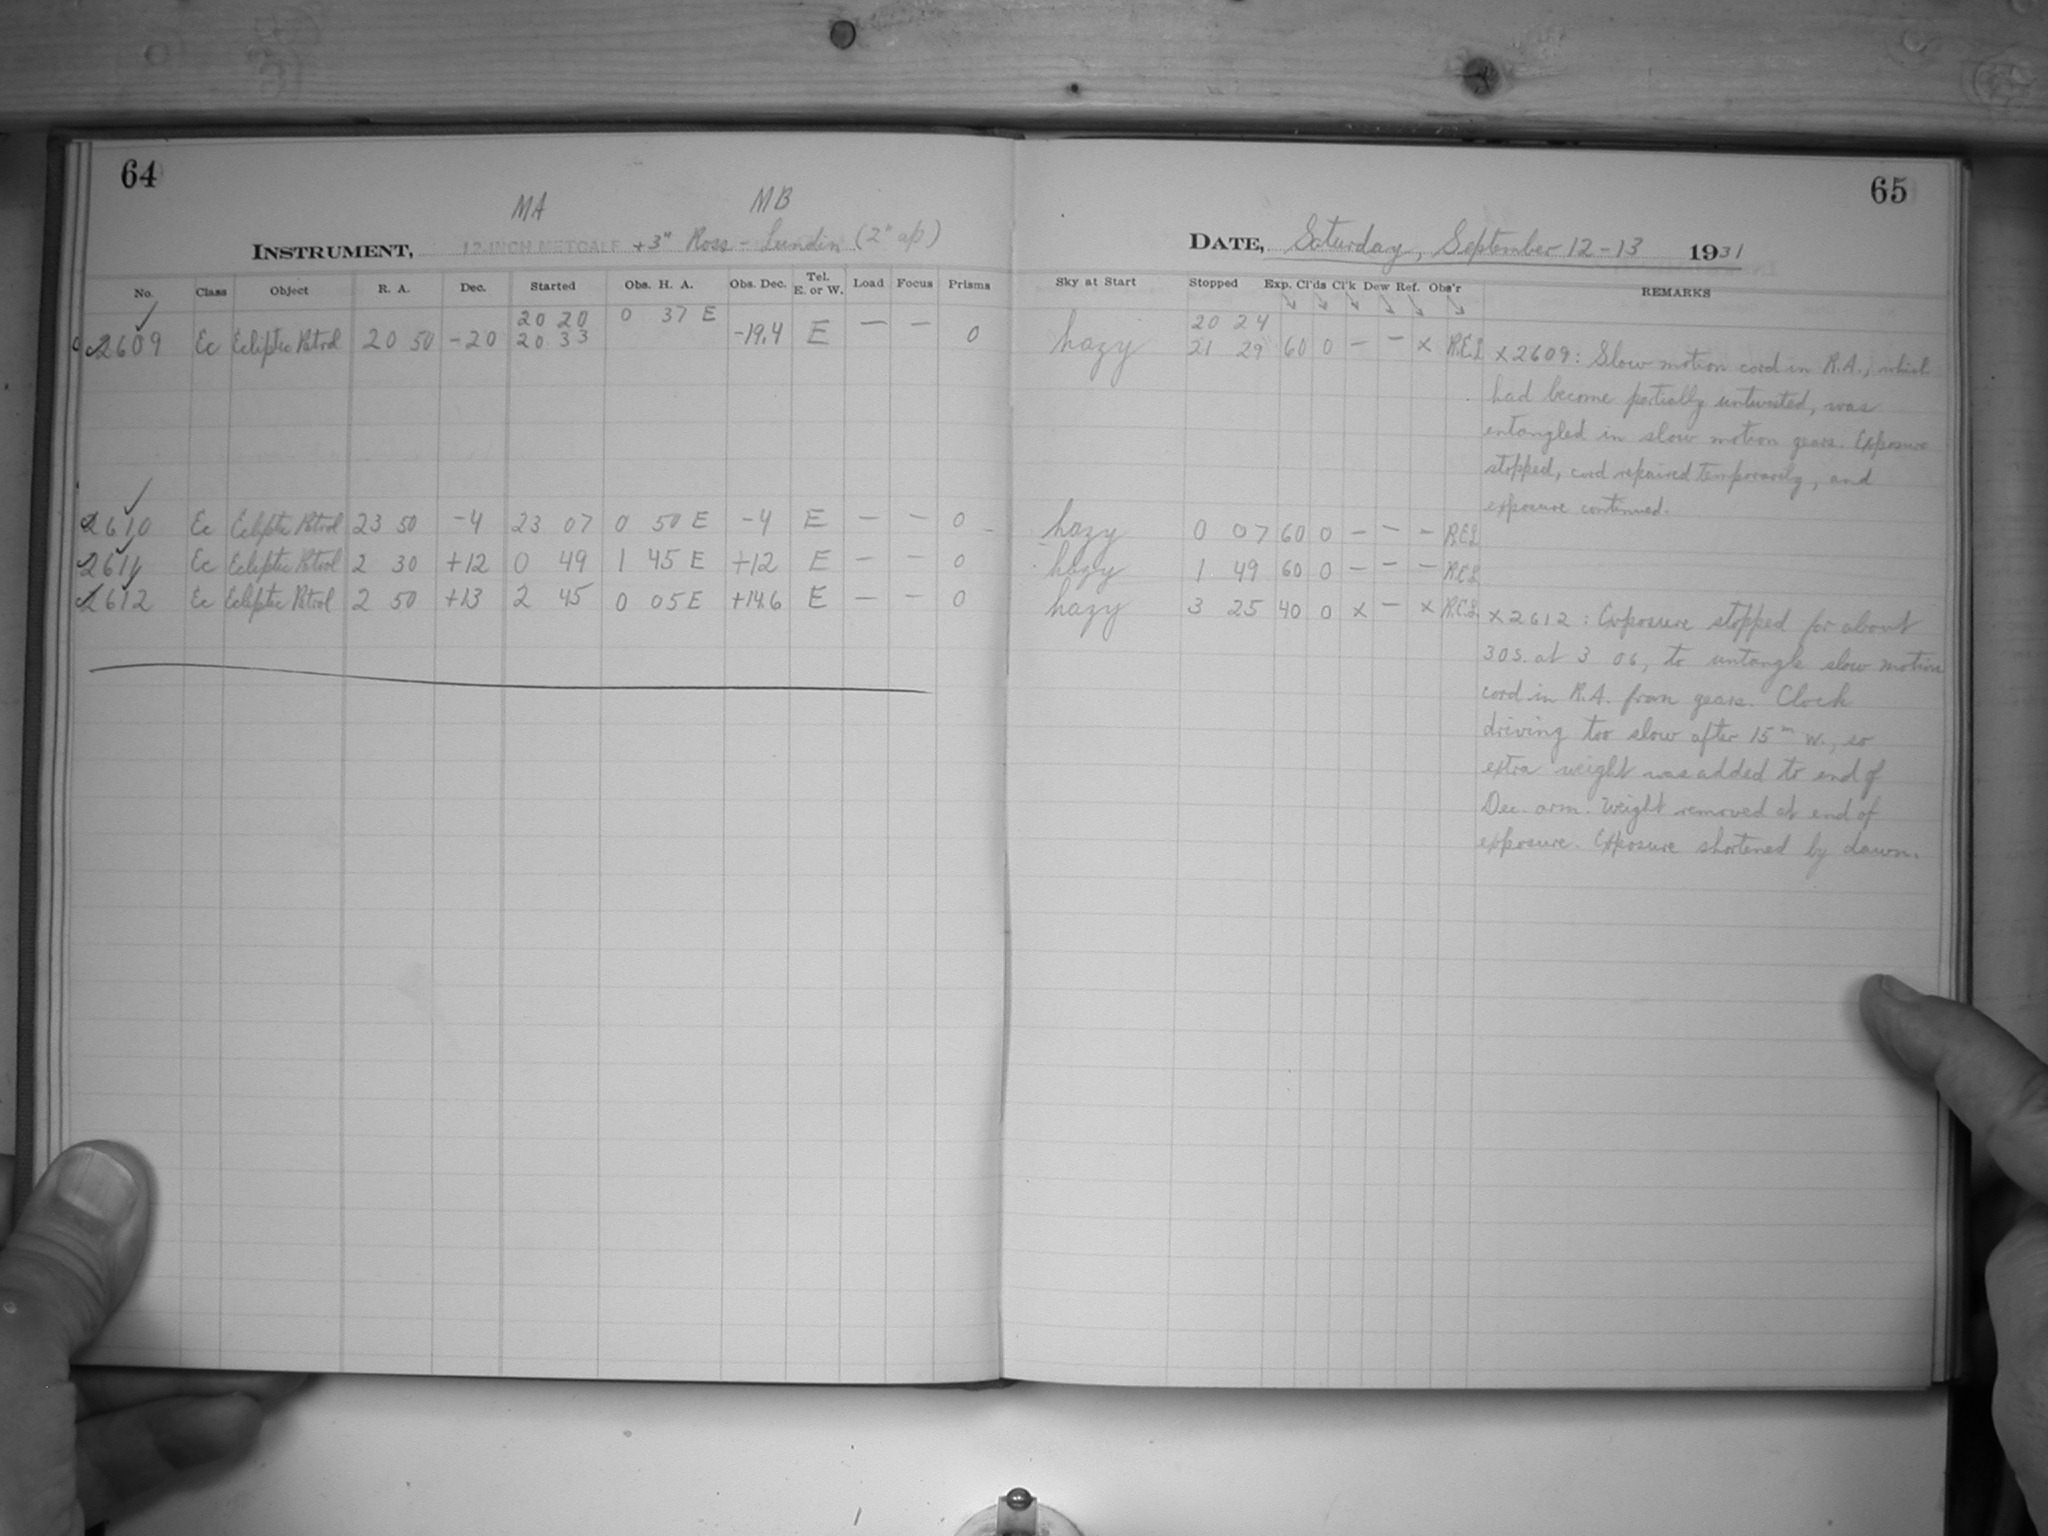 64
MA MB
INSTRUMENT, 12-INCH METCALF +3" Ross - Lundin (2" ap)
No. Class Object R. A. Dec. Started Obs. H. A. Obs. Dec. Tel. E. or W. Load Focus Prisms
20 20 0 37 E
2609 Ec Ecliptic Patrol 20 50 -20 20 33 -19.4 E — — 0
2610 Ec Ecliptic Patrol 23 50 -4 23 07 0 50 E -4 E — — 0
2611 Ec Ecliptic Patrol 2 30 +12 0 49 1 45 E +12 E — — 0
2612 Ec Ecliptic Patrol 2 50 +13 2 45 0 05 E +14.6 E — — 0
65
DATE, Saturday, September 12-13 1931
Sky at Start Stopped Exp. Cl'ds Cl'k Dew Ref. Obs'r REMARKS
20 24
hazy 21 29 60 0 — — x R.E.L
x2609: Slow motion cord in R.A., which
had become partially untwisted, was
entangled in slow motion gears. Exposure
stopped, cord repaired temporarily, and
exposure continued.
hazy 0 07 60 0 — — — R.E.L
hazy 1 49 60 0 — — — R.E.L
hazy 3 25 40 0 x — x R.E.L.
x2612: Exposure stopped for about
30s. at 3 06, to untangle slow motion
cord in R.A. from gears. Clock
driving too slow after 15m W., so
extra weight was added to end of
Dec. arm. Weight removed at end of
exposure. Exposure shortened by dawn.